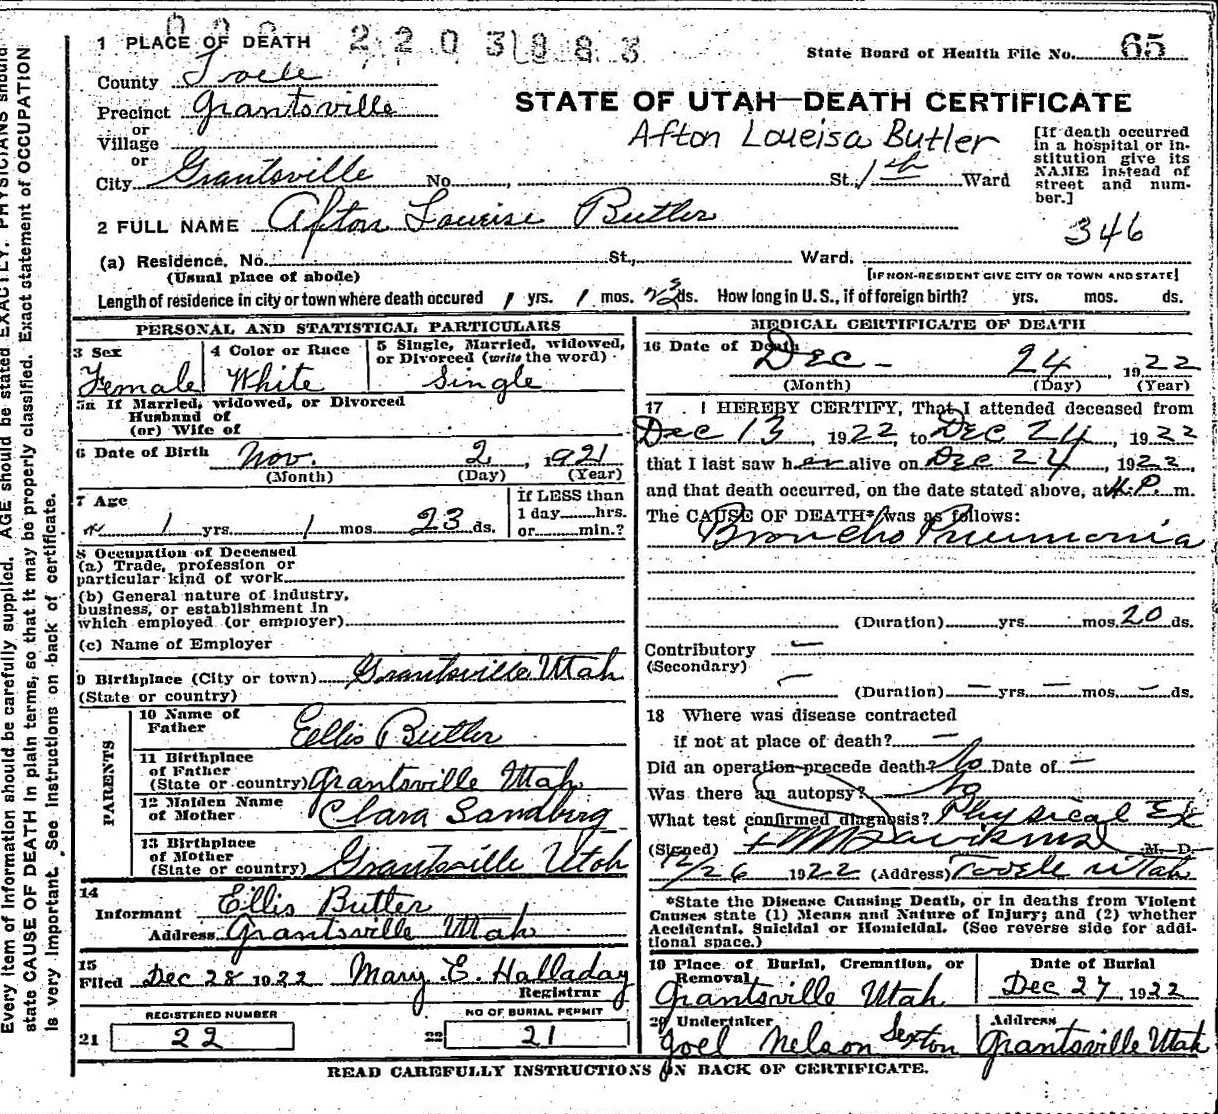 1 PLACE OF DEATH
State Board of Health File No. 65
County Tooele
Precinct Grantsville
or
Village
or
City Grantsville No. , St., 1st Ward
STATE OF UTAH—DEATH CERTIFICATE
Afton Loueisa Butler
[If death occurred
in a hospital or in-
stitution give its
NAME instead of
street and num-
ber.]
2 FULL NAME Afton Loueise Butler
346
(a) Residence. No. St., Ward.
(Usual place of abode)
[IF NON-RESIDENT GIVE CITY OR TOWN AND STATE]
Length of residence in city or town where death occured 1 yrs. 1 mos. 23 ds. How long in U. S., if of foreign birth? yrs. mos. ds.
PERSONAL AND STATISTICAL PARTICULARS
3 Sex
Female
4 Color or Race
White
5 Single, Married, widowed,
or Divorced (write the word)
Single
5a If Married, widowed, or Divorced
Husband of
(or) Wife of
6 Date of Birth Nov. 2, 1921
(Month) (Day) (Year)
7 Age
1 yrs. 1 mos. 23 ds.
If LESS than
1 day hrs.
or min.?
8 Occupation of Deceased
(a) Trade, profession or
particular kind of work
(b) General nature of industry,
business, or establishment in
which employed (or employer)
(c) Name of Employer
9 Birthplace (City or town) Grantsville Utah
(State or country)
PARENTS
10 Name of
Father Ellis Butler
11 Birthplace
of Father
(State or country) Grantsville Utah
12 Maiden Name
of Mother Clara Sandberg
13 Birthplace
of Mother
(State or country) Grantsville Utah
14
Informant Ellis Butler
Address Grantsville Utah
15
Filed Dec 28 1922 Mary E. Halladay
Registrar
REGISTERED NUMBER
21 22
NO OF BURIAL PERMIT
22 21
MEDICAL CERTIFICATE OF DEATH
16 Date of Death
Dec - 24, 1922
(Month) (Day) (Year)
17 I HEREBY CERTIFY, That I attended deceased from
Dec 13, 1922 to Dec 24, 1922
that I last saw her alive on Dec 24, 1922,
and that death occurred, on the date stated above, at P. m.
The CAUSE OF DEATH* was as follows:
Broncho Pneumonia
(Duration) yrs. mos. 20 ds.
Contributory —
(Secondary)
— (Duration) — yrs. — mos. — ds.
18 Where was disease contracted
if not at place of death? —
Did an operation precede death? No Date of —
Was there an autopsy? No
What test confirmed diagnosis? Physical Ex
(Signed) M. D.
12/26 1922 (Address) Tooele Utah
*State the Disease Causing Death, or in deaths from Violent
Causes state (1) Means and Nature of Injury; and (2) whether
Accidental, Suicidal or Homicidal. (See reverse side for addi-
tional space.)
19 Place of Burial, Cremation, or
Removal
Grantsville Utah
Date of Burial
Dec 27, 1922
20 Undertaker
Joel Nelson Sexton
Address
Grantsville Utah
READ CAREFULLY INSTRUCTIONS ON BACK OF CERTIFICATE.
Every item of information should be carefully supplied. AGE should be stated EXACTLY. PHYSICIANS should
state CAUSE OF DEATH in plain terms, so that it may be properly classified. Exact statement of OCCUPATION
is very important. See instructions on back of certificate.